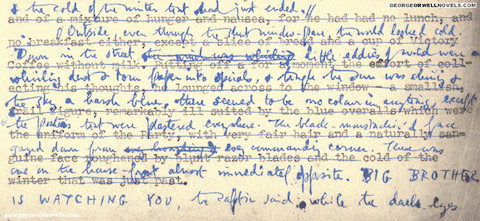 GEORGEORWELLNOVELS.COM
& the cold of the winter that had just ended.
and of a mixture of hunger and nausea, for he had had no lunch, and
Outside, even through the shut window-pane, the world looked cold.
no breakfast either, except a slice of bread and a cup of Victory
Down in the street the wind was whirling little eddies of wind were
Coffee without milk. for a moment. the effort of coll-
whirling dust & torn paper into spirals, & though the sun was shining &
ecting his thoughts, he lounged across to the window - a smallish,
the sky a harsh blue, there seemed to be no colour in anything except
frail figure, remarkably ill suited by the blue overalls which were
the posters that were plastered everywhere. The black-mustachio'd face
the uniform of the Party, with very fair hair and a naturally san-
gazed down from every commanding corner. There was
guine face roughened by blunt razor blades and the cold of the
one on the house-front almost immediately opposite. BIG BROTHER
winter that was just past.
IS WATCHING YOU, the caption said, while the dark eyes
georgeorwellnovels.com